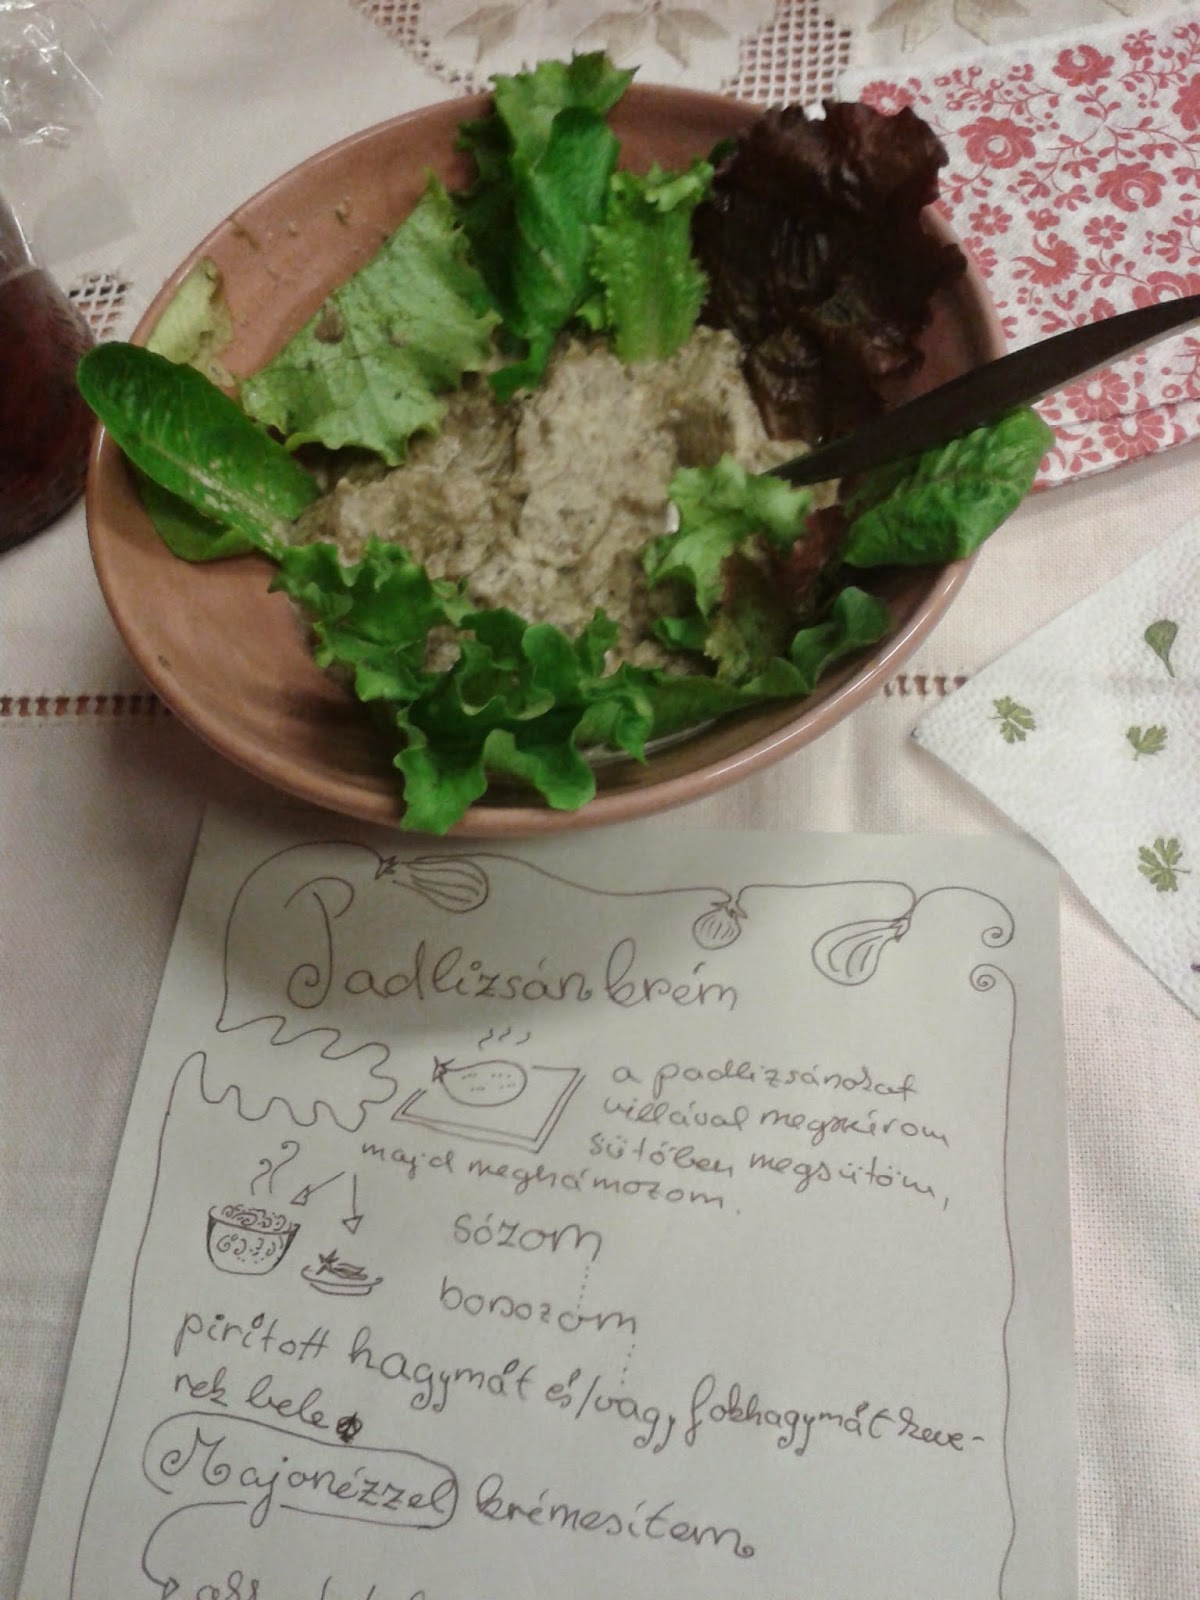 Padlizsánkrém
a padlizsánokat
villával megszúrom
sütőben megsütöm,
majd meghámozom.
sózom
borsozom
pirított hagymát és/vagy fokhagymát keve-
rek bele
Majonézzel krémesítem